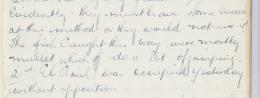 Evidently they must have some success
at this method or they would not use it
The fish caught this way were mostly
mullet which do a lot of jumping
2nd El Arish was occupied yesterday
without opposition